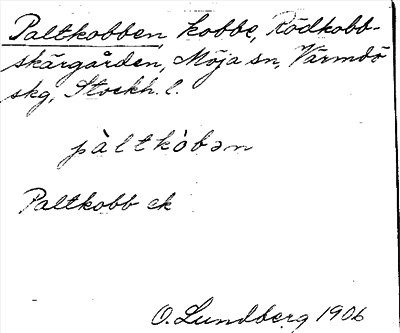 Paltkobben, kobbe, Rödkobb-
skärgården, Möja sn, Värmdö
skg, Stockh. l.
pàltkòbən
Paltkobb ek
O. Lundberg 1906